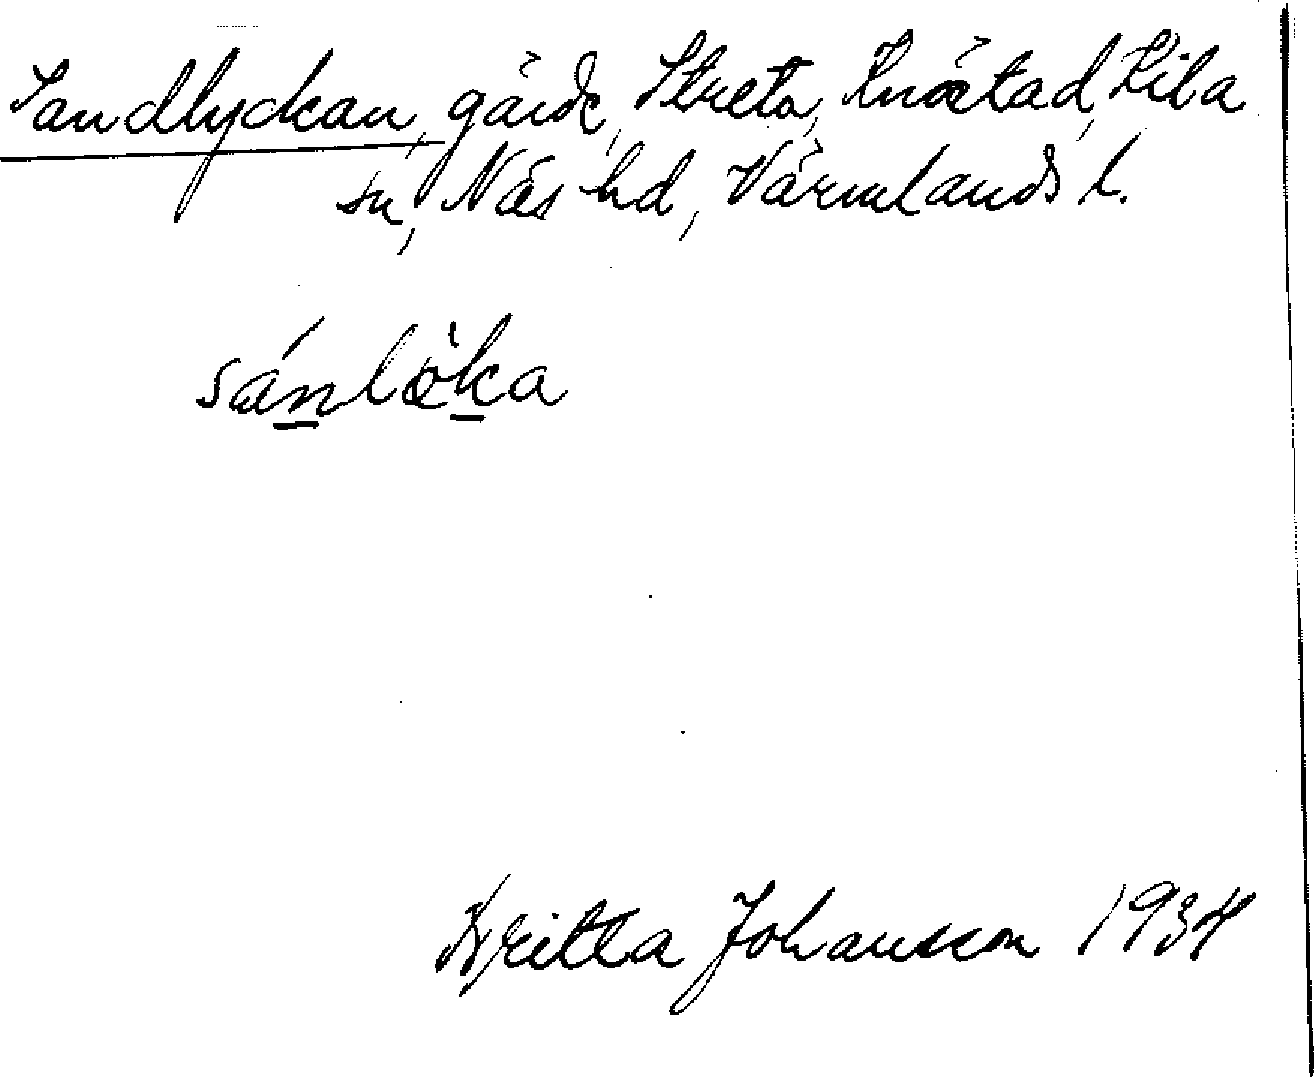 Sandlyckan, gärde, Streta, Knöstad, Kila
sn, Näs hd, Värmlands l.
sánlö̀ka
Britta Johansson 1934